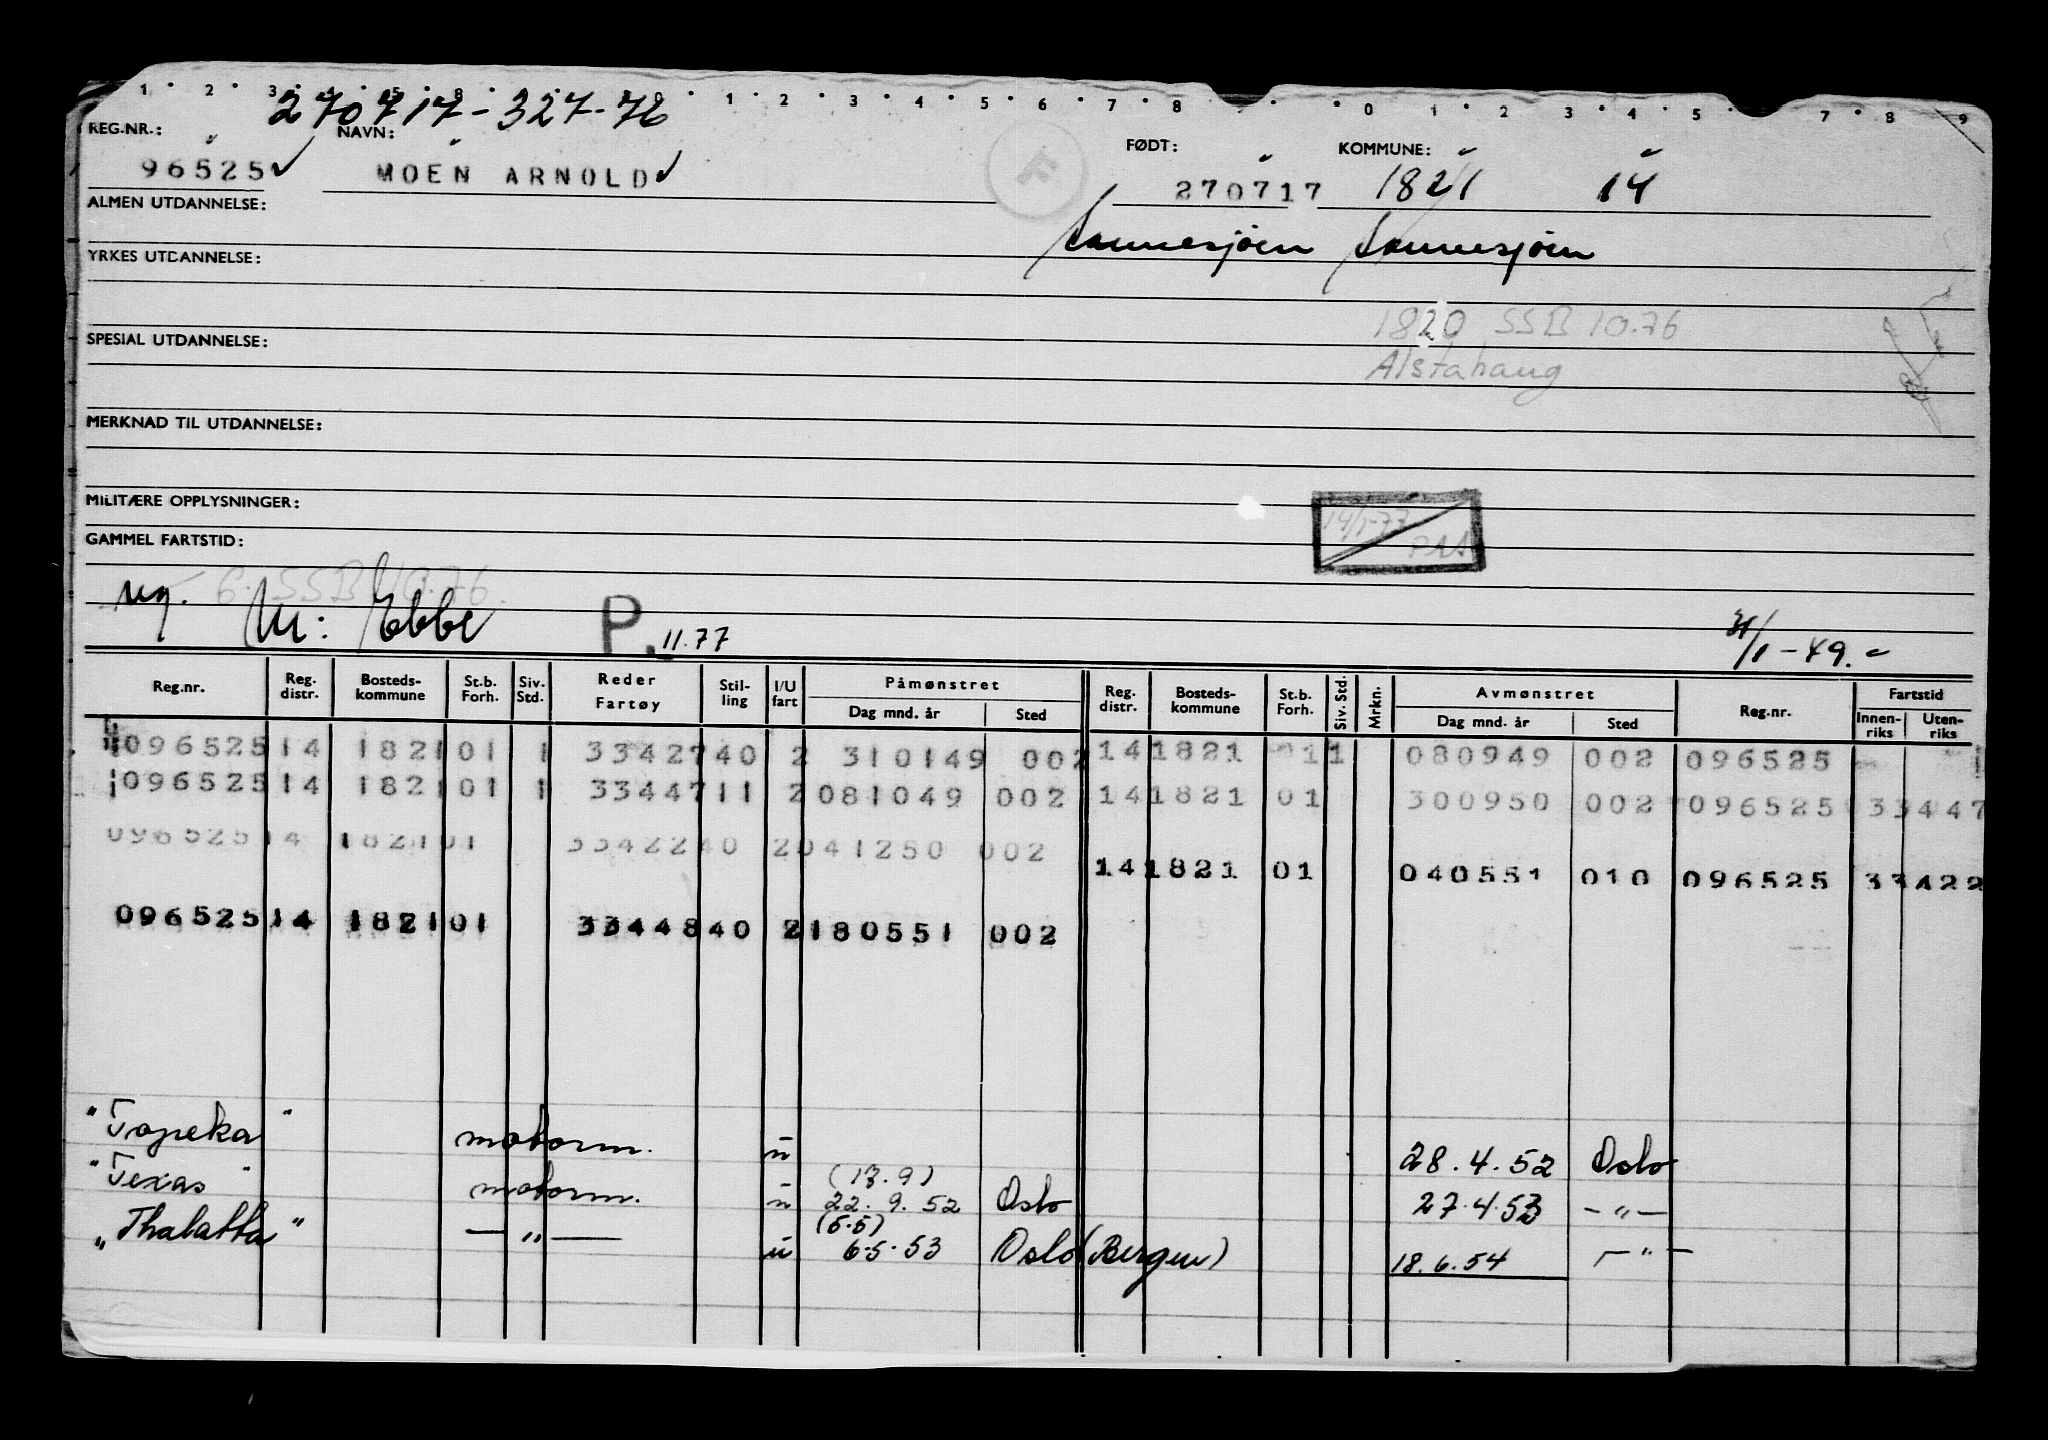 1 2 3 4 5 8 1 2 3 4 5 6 7 8 0 1 2 3 4 5 7 8 9
270717-327-76
REG.NR.: NAVN: FØDT: KOMMUNE:
96525 ✓ MOEN ARNOLD ✓ 270717 1821 14
ALMEN UTDANNELSE:
Sannesjøen Sannesjøen
YRKES UTDANNELSE:
1820 SSB 10.76
SPESIAL UTDANNELSE:
Alstahaug
MERKNAD TIL UTDANNELSE:
MILITÆRE OPPLYSNINGER:
14/1-77
GAMMEL FARTSTID:
G. SSB 10.76.
M: Ebbe P. 11.77 31/1-49.
Reg.nr. Reg. distr. Bosteds-kommune St.b. Forh. Siv. Std. Reder Fartøy Stil-ling I/U fart Påmønstret Dag mnd. år Sted Reg. distr. Bosteds-kommune St.b. Forh. Siv. Std. Mrkn. Avmønstret Dag mnd. år Sted Reg.nr. Fartstid Innen-riks Uten-riks
096525 14 1821 01 1 33427 40 2 310149 002 14 1821 01 1 080949 002 096525
096525 14 1821 01 1 33447 11 2 081049 002 14 1821 01 300950 002 096525 33447
096525 14 1821 01 33422 40 2 041250 002
14 1821 01 040551 010 096525 33422
096525 14 1821 01 33448 40 2 180551 002
"Topeka" motorm. u 28.4.52 Oslo
"Texas" motorm. u (13.9) 22.9.52 Oslo 27.4.53 -"-
"Thalatta" -"- u (5.5) 6.5.53 Oslo (Bergen) 18.6.54 -"-